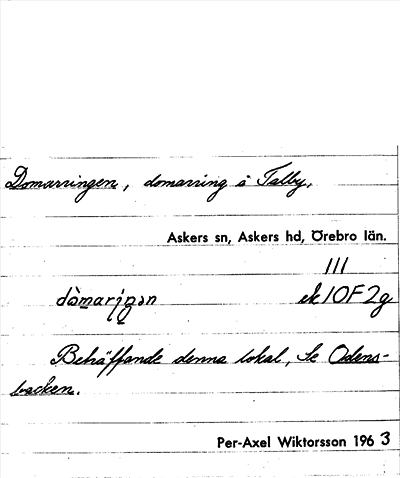 Domarringen, domarring å Talby.
Askers sn, Askers hd, Örebro län.
III
dò̱mari̱ŋən ek 10F2g
Beträffande denna lokal, se Odens-
backen.
Per-Axel Wiktorsson 1963